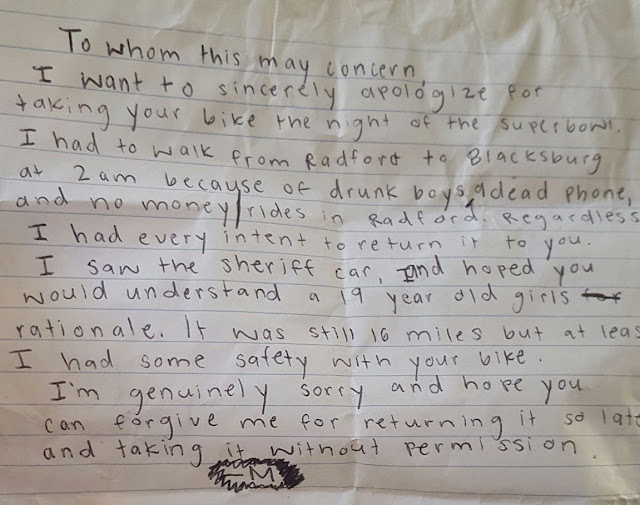 To whom this may concern,
I want to sincerely apologize for
taking your bike the night of the superbowl.
I had to walk from Radford to Blacksburg
at 2am because of drunk boys, a dead phone,
and no money/rides in Radford. Regardless
I had every intent to return it to you.
I saw the sheriff car, and hoped you
would understand a 19 year old girls
rationale. It was still 16 miles but at leas
I had some safety with your bike.
I'm genuinely sorry and hope you
can forgive me for returning it so late
and taking it without permission.
-M